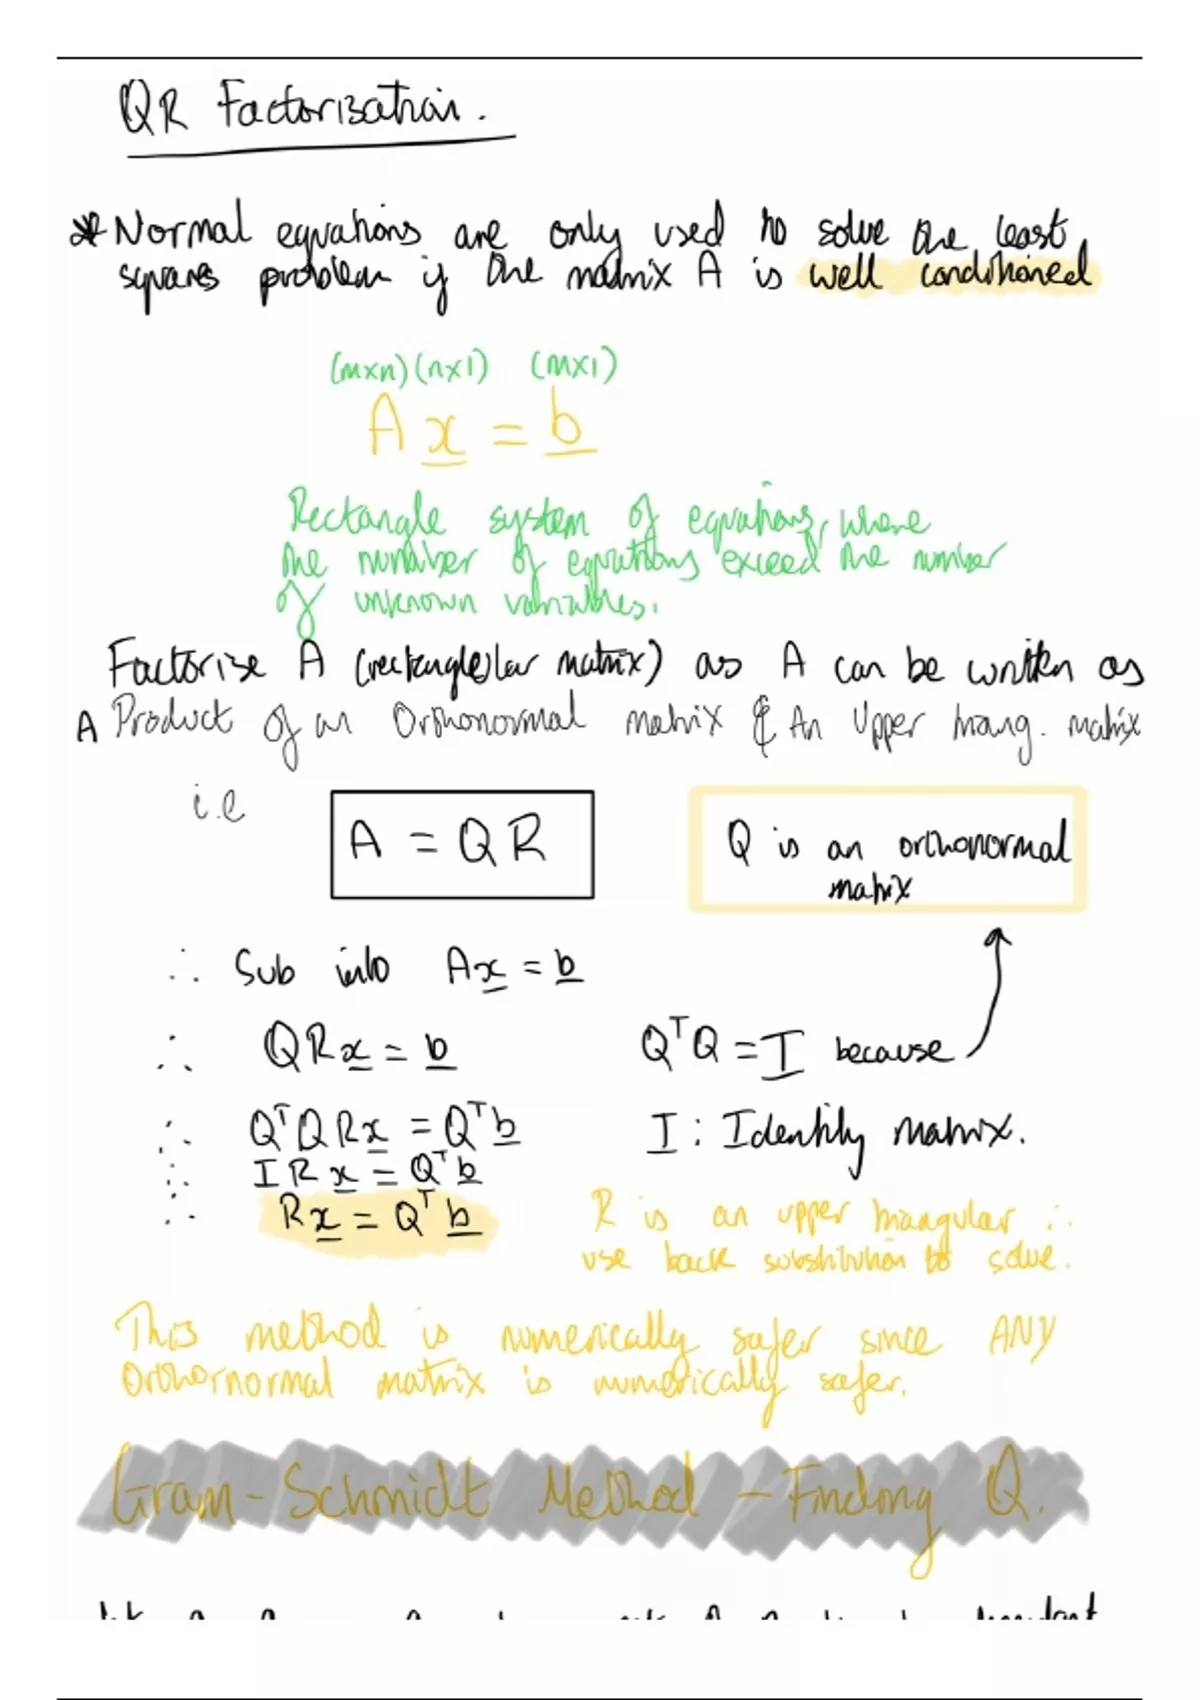 QR Factorisation.
* Normal equations are only used to solve the least
squares problem if the matrix A is well conditioned
(m×n) (n×1) (m×1)
A x = b
Rectangle system of equations, where
the number of equations exceed the number
of unknown variables.
Factorise A (rectangle)lar matrix) as A can be written as
A Product of an Orthonormal matrix & An Upper triang. matrix
i.e
A = QR
Q is an orthonormal
matrix
∴ Sub into Ax = b
∴ QRx = b
QᵀQ = I because
∴ QᵀQRx = Qᵀb
I : Identity matrix.
∴ IRx = Qᵀb
∴ Rx = Qᵀb
R is an upper triangular ∴
use back substitution to solve.
This method is numerically safer since ANY
Orthornormal matrix is numerically safer.
Gram-Schmidt Method – Finding Q.